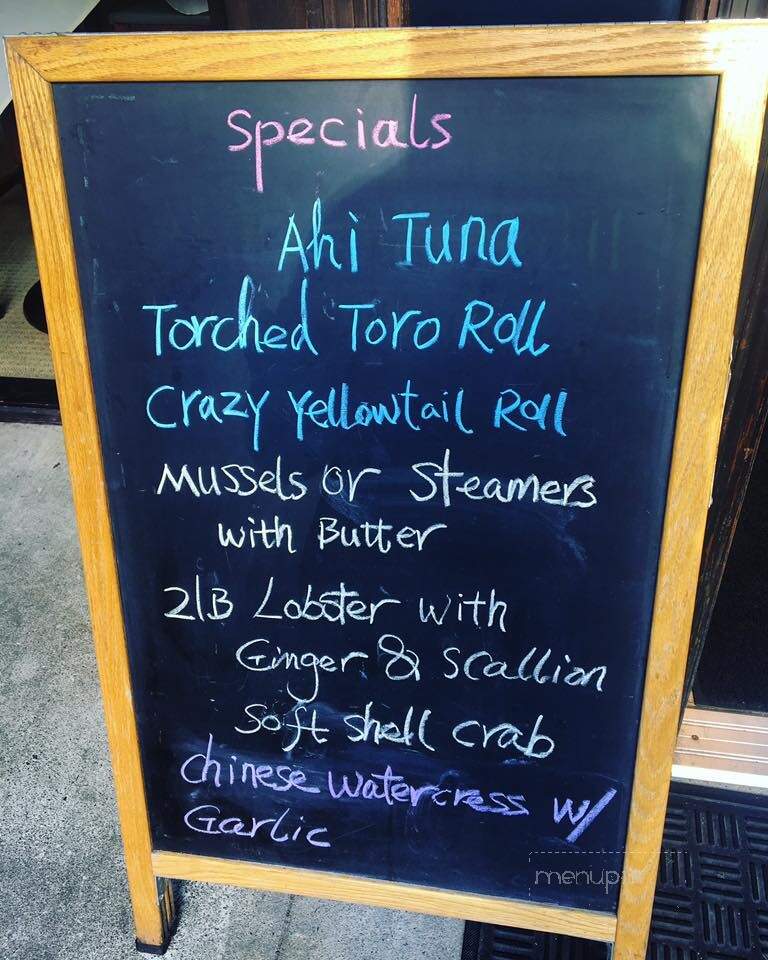 Specials
Ahi Tuna
Torched Toro Roll
Crazy Yellowtail Roll
Mussels or Steamers
with Butter
2lB Lobster with
Ginger & Scallion
Soft Shell Crab
Chinese Watercress w/
Garlic
menupix